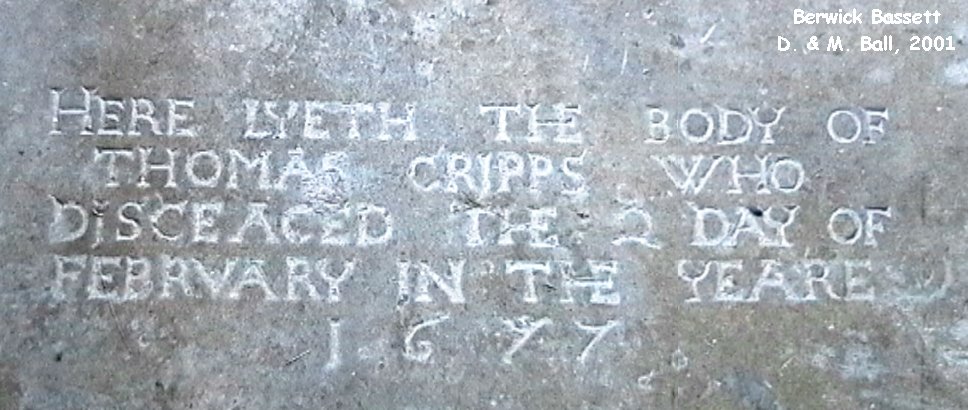 Berwick Bassett
D. & M. Ball, 2001
HERE LYETH THE BODY OF
THOMAS CRIPPS WHO
DISCEACED THE 2 DAY OF
FEBRVARY IN THE YEARE
1677